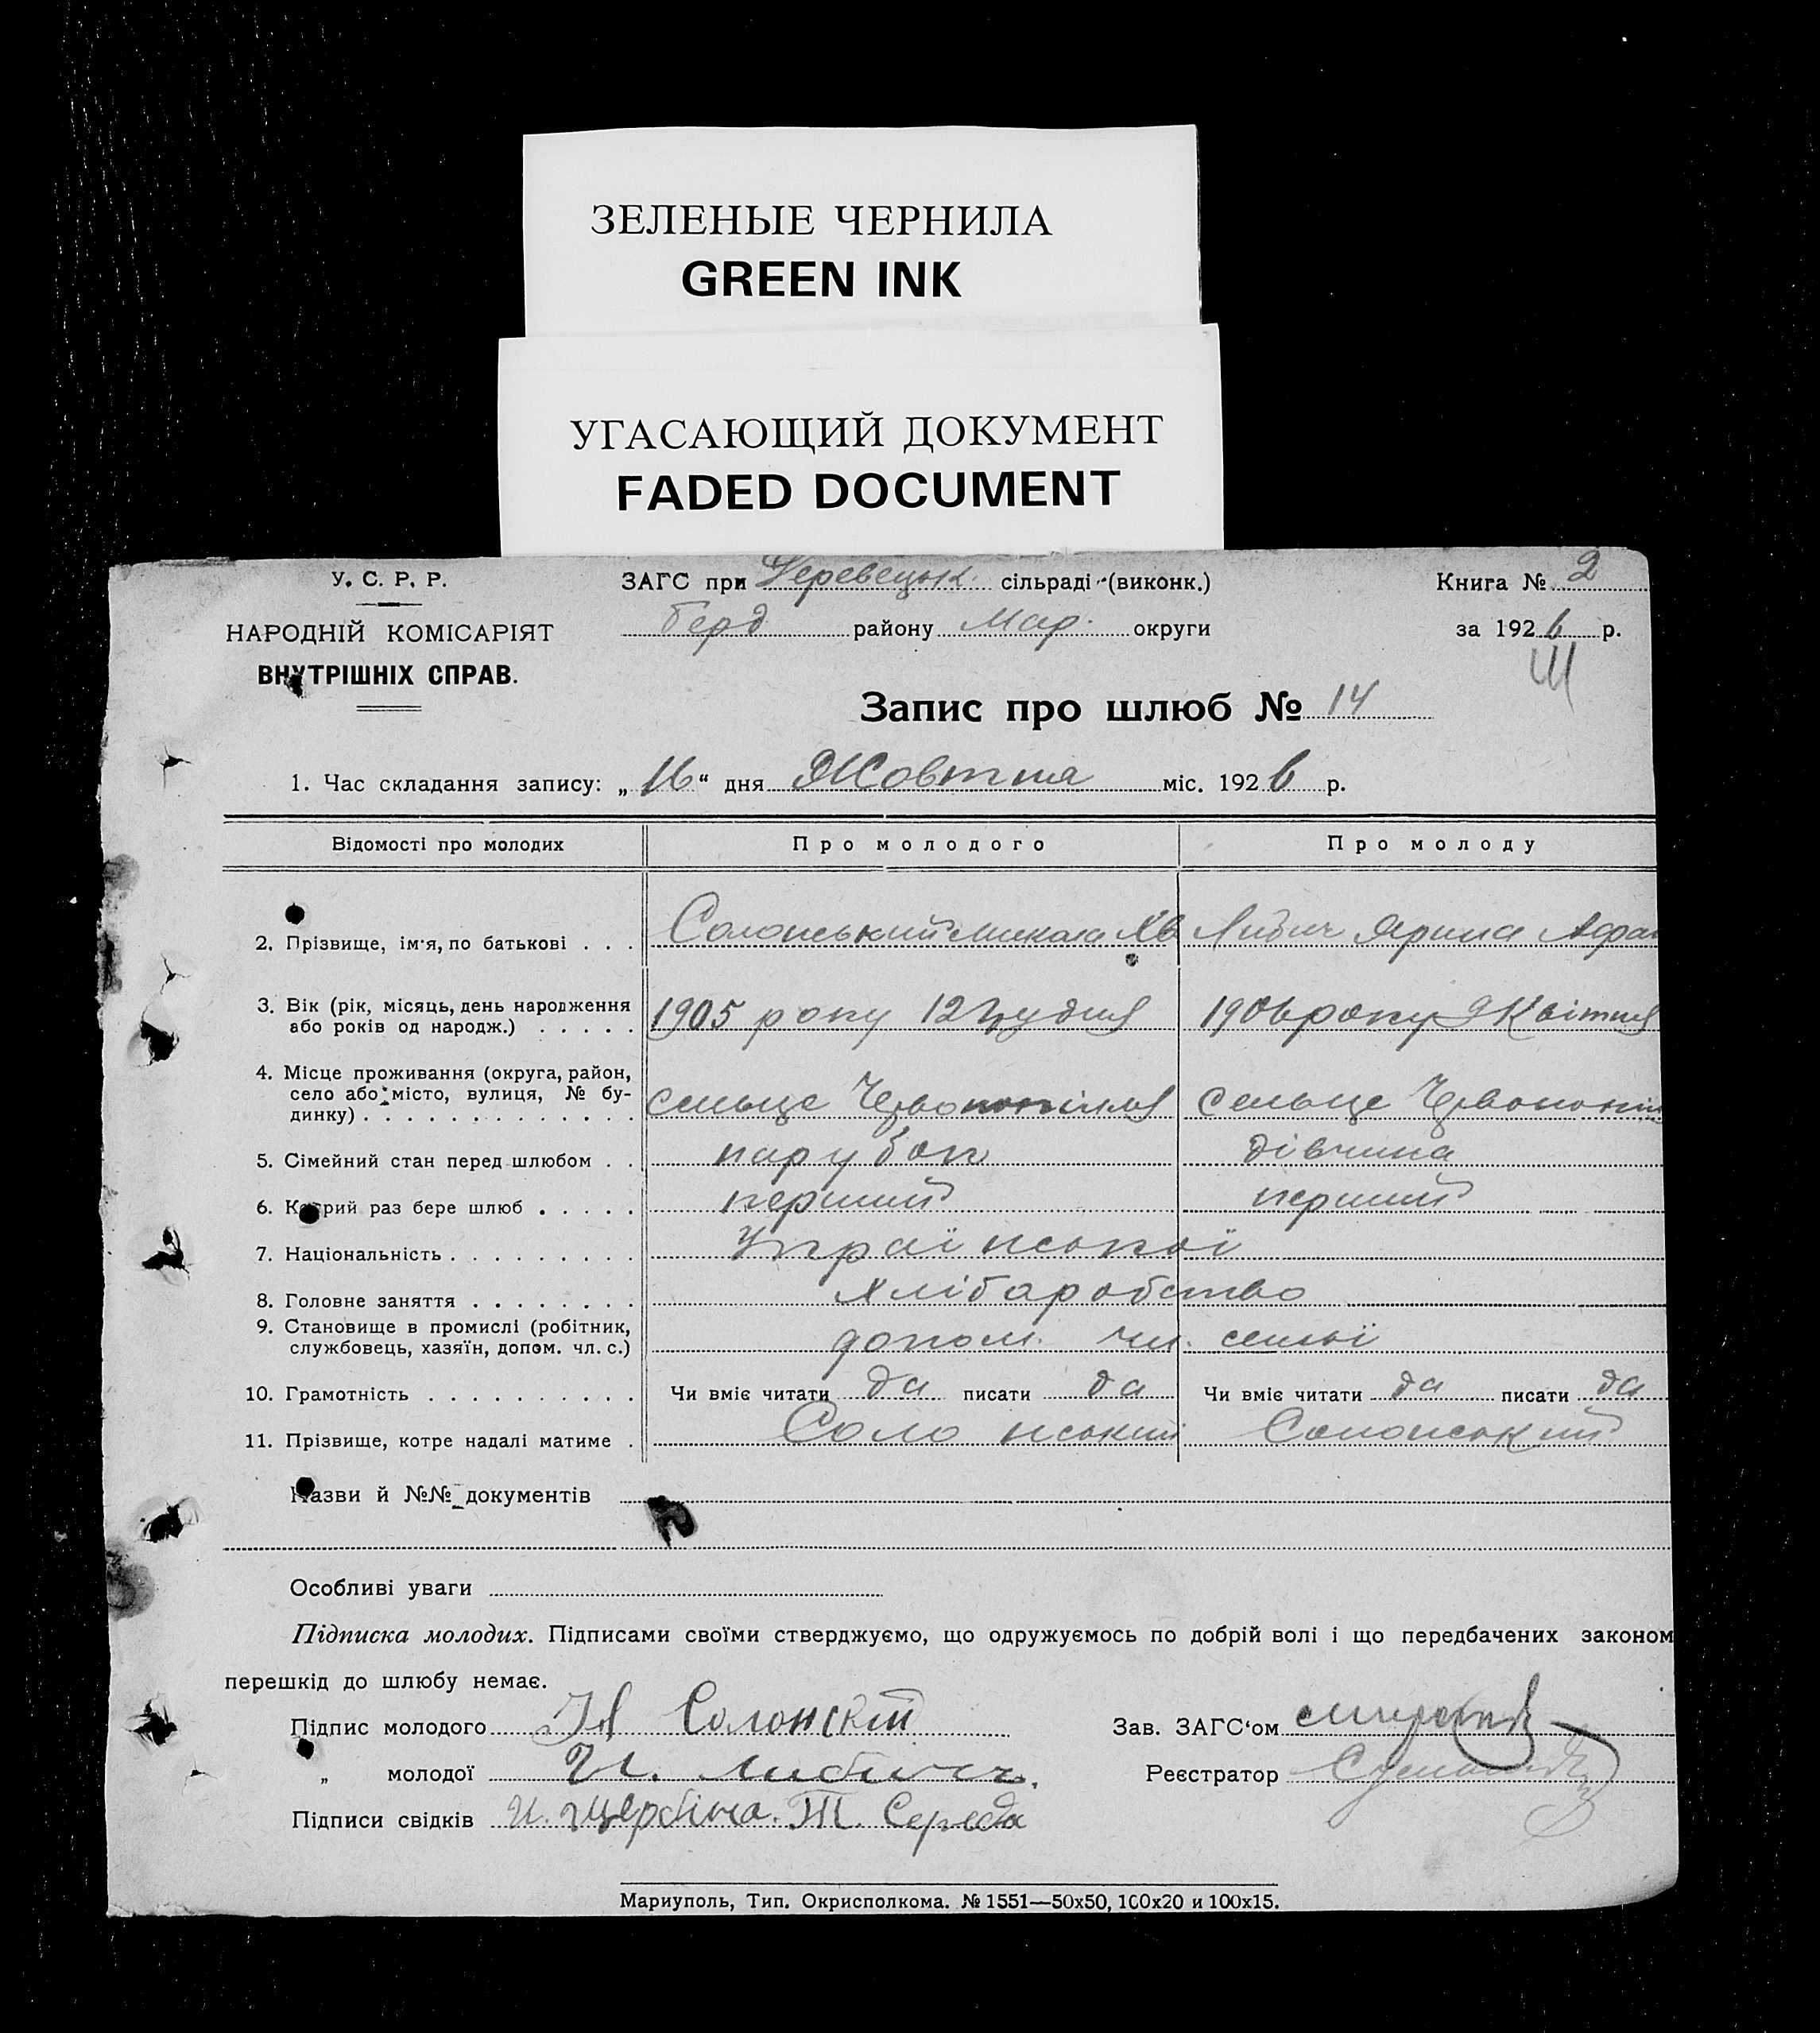 ЗЕЛЕНЫЕ ЧЕРНИЛА
GREEN INK
УГАСАЮЩИЙ ДОКУМЕНТ
FADED DOCUMENT
У. С. Р. Р.
НАРОДНІЙ КОМІСАРІЯТ
ВНУТРІШНІХ СПРАВ.
ЗАГС при сільраді (виконк.)
Берд району Мар. округи
Книга № 2
за 1926 р.
Запис про шлюб № 14
1. Час складання запису: „16“ дня Жовтня міс. 1926 р.
Відомості про молодих Про молодого Про молоду
2. Прізвище, ім'я, по батькові . . . Солонський Микола Хв Либич Ярина Афан
3. Вік (рік, місяць, день народження 1905 року 12 Грудня 1906 року 9 Квітня
або років од народж.) . . . . .
4. Місце проживання (округа, район,
село або місто, вулиця, № бу- сельце сельце
динку) . . . . . . . . . . . . .
5. Сімейний стан перед шлюбом . . парубок дівчина
6. Котрий раз бере шлюб . . . . . перший перший
7. Національність . . . . . . . . . Української
8. Головне заняття . . . . . . . . Хліборобство
9. Становище в промислі (робітник,
службовець, хазяїн, допом. чл. с.) допом. чл. семьї
10. Грамотність . . . . . . . . . . Чи вміє читати да писати да Чи вміє читати да писати да
11. Прізвище, котре надалі матиме . Солонський Солонський
Назви й №№ документів
Особливі уваги
Підписка молодих. Підписами своїми стверджуємо, що одружуємось по добрій волі і що передбачених законом
перешкід до шлюбу немає.
Підпис молодого Солонскій Зав. ЗАГС‘ом
„ молодої И. Либичь. Реєстратор
Підписи свідків И. Щербина. Т. Середа
Мариуполь, Тип. Окрисполкома. № 1551—50х50, 100х20 и 100х15.